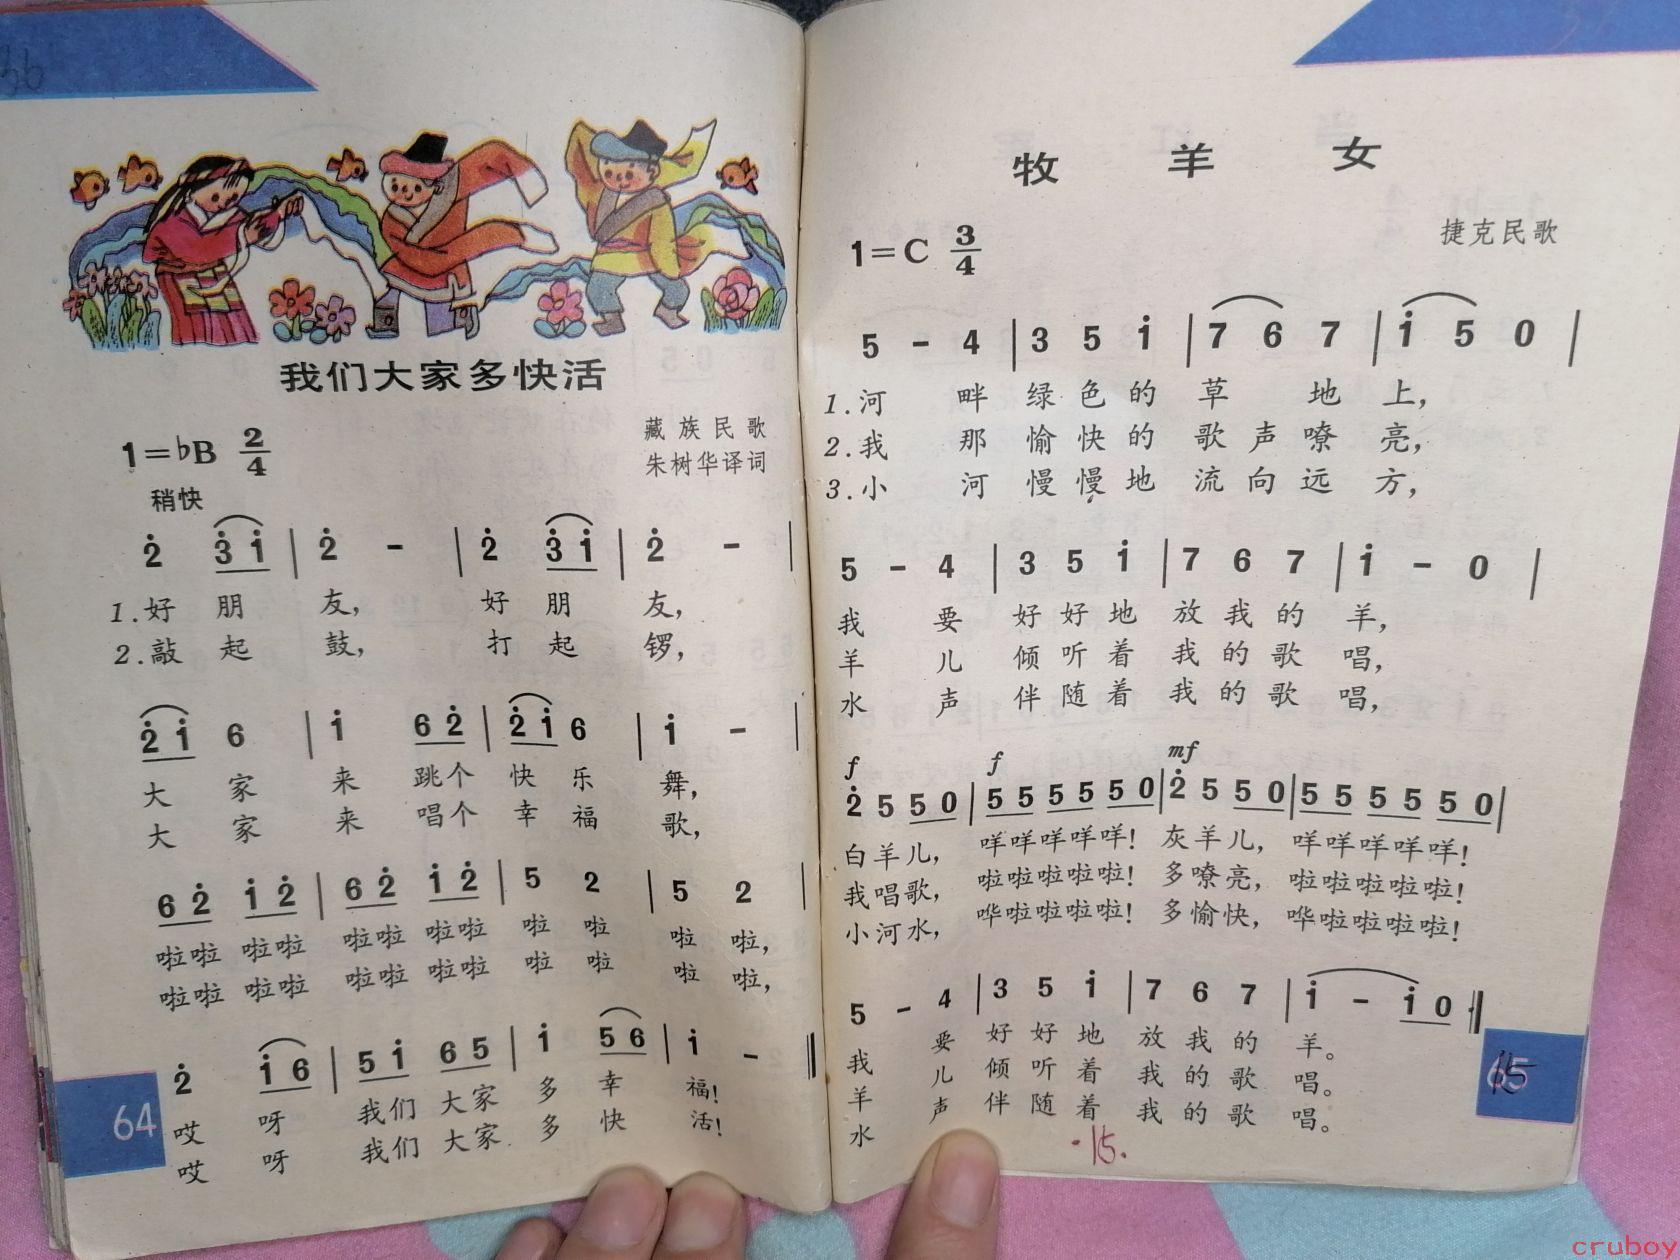 我们大家多快活
1=♭B 2/4
藏族民歌
稍快
朱树华译词
2̇ 3̇ 1̇ | 2̇ - | 2̇ 3̇ 1̇ | 2̇ - |
1.好 朋 友, 好 朋 友,
2.敲 起 鼓, 打 起 锣,
2̇ 1̇ 6 | 1̇ 6 2̇ | 2̇ 1̇ 6 | 1̇ - |
大 家 来 跳个 快 乐 舞,
大 家 来 唱个 幸 福 歌,
6 2̇ 1̇ 2̇ | 6 2̇ 1̇ 2̇ | 5 2 | 5 2 |
啦啦 啦啦 啦啦 啦啦 啦 啦 啦 啦,
啦啦 啦啦 啦啦 啦啦 啦 啦 啦 啦,
2̇ 1̇ 6 | 5 1̇ 6 5 | 1̇ 5 6 | 1̇ - ‖
哎 呀 我们 大家 多 幸 福!
哎 呀 我们 大家 多 快 活!
64
牧羊女
捷克民歌
1=C 3/4
5 - 4 | 3 5 1̇ | 7 6 7 | 1̇ 5 0 |
1.河 畔 绿 色 的 草 地 上,
2.我 那 愉 快 的 歌 声 嘹 亮,
3.小 河 慢 慢 地 流 向 远 方,
5 - 4 | 3 5 1̇ | 7 6 7 | 1̇ - 0 |
我 要 好 好 地 放 我 的 羊,
羊 儿 倾 听 着 我 的 歌 唱,
水 声 伴 随 着 我 的 歌 唱,
f f mf
2̇ 5 5 0 | 5 5 5 5 5 0 | 2̇ 5 5 0 | 5 5 5 5 5 0 |
白羊儿, 咩咩咩咩咩! 灰羊儿, 咩咩咩咩咩!
我唱歌, 啦啦啦啦啦! 多嘹亮, 啦啦啦啦啦!
小河水, 哗啦啦啦啦! 多愉快, 哗啦啦啦啦!
5 - 4 | 3 5 1̇ | 7 6 7 | 1̇ - 1̇ 0 ‖
我 要 好 好 地 放 我 的 羊。
羊 儿 倾 听 着 我 的 歌 唱。
水 声 伴 随 着 我 的 歌 唱。
65
15.
cruboy